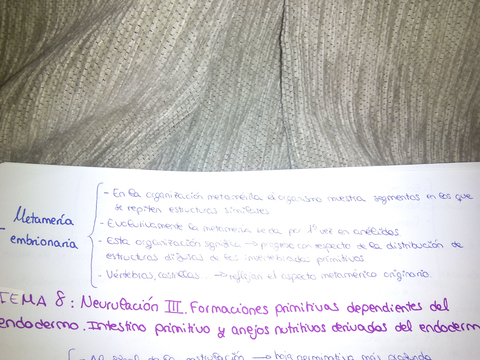 - En la organización metamérica el organismo muestra segmentos en los que
se repiten estructuras similares
- Evolutivamente la metamería se da por 1ª vez en anélidos
- Metamería embrionaria
- Esta organización significa → progreso con respecto de la distribución de
estructuras difusas de los invertebrados primitivos
- Vértebras, costillas... → reflejan el aspecto metamérico originario.
TEMA 8: Neurulación III. Formaciones primitivas dependientes del
endodermo. Intestino primitivo y anejos nutritivos derivados del endoderm
- Al final de la gastrulación → hoja germinativa más profunda